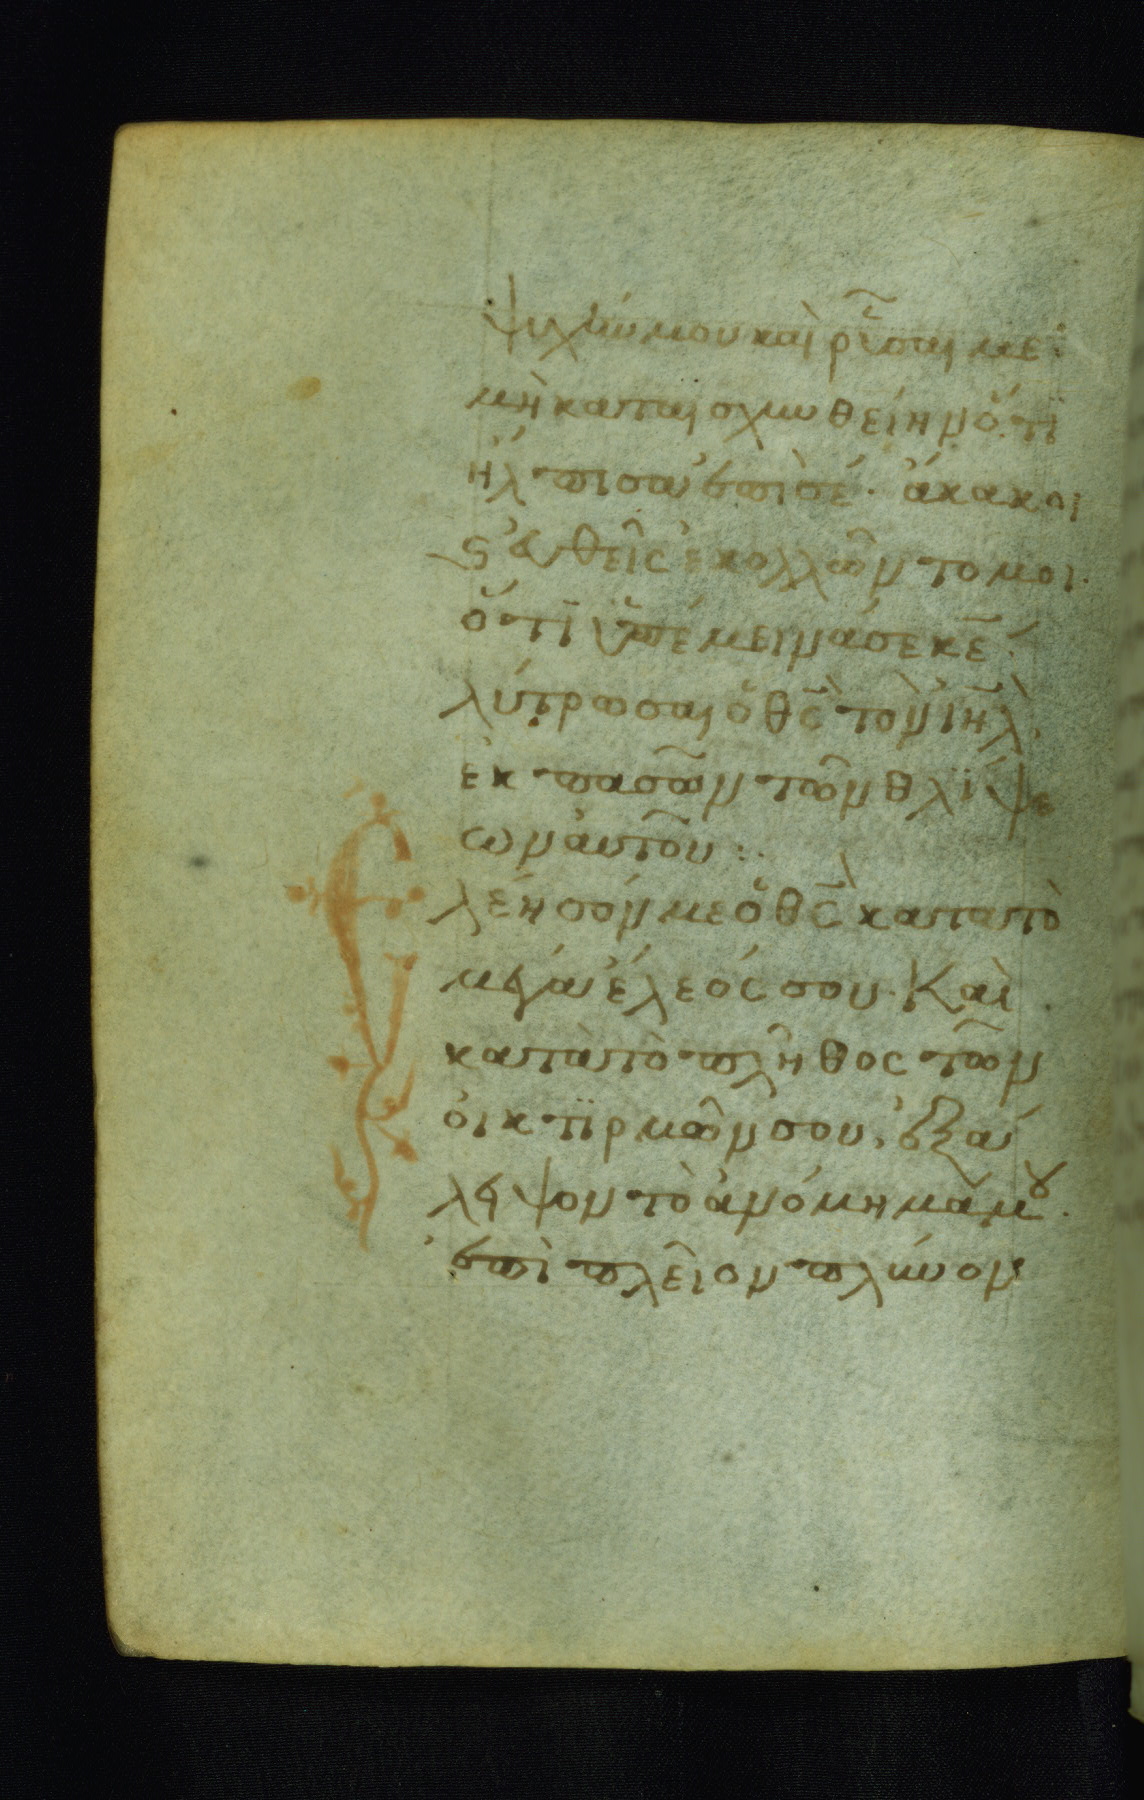 ψυχήν μου καὶ ρῦσαί με·
μὴ καταισχυνθείην ὅτι
ἤλπισα ἐπὶ σέ· ἄκακοι
ϛ εὐθεῖς ἐκολλῶντό μοι·
ὅτι ὑπέμεινά σε κε̅·
λύτρωσαι ὁ θς̅ τὸν ιηλ̅·
ἐκ πασῶν τῶν θλίψε
ων αὐτοῦ :·
Ελέησόν με ὁ θς̅ κατὰ τὸ
μέγα ἔλεός σου· Καὶ
κατὰ τὸ πλῆθος τῶν
οἰκτιρμῶν σου, ἐξά
λειψον τὸ ἀνόμημά μου·
ἐπὶ πλεῖον πλύνον